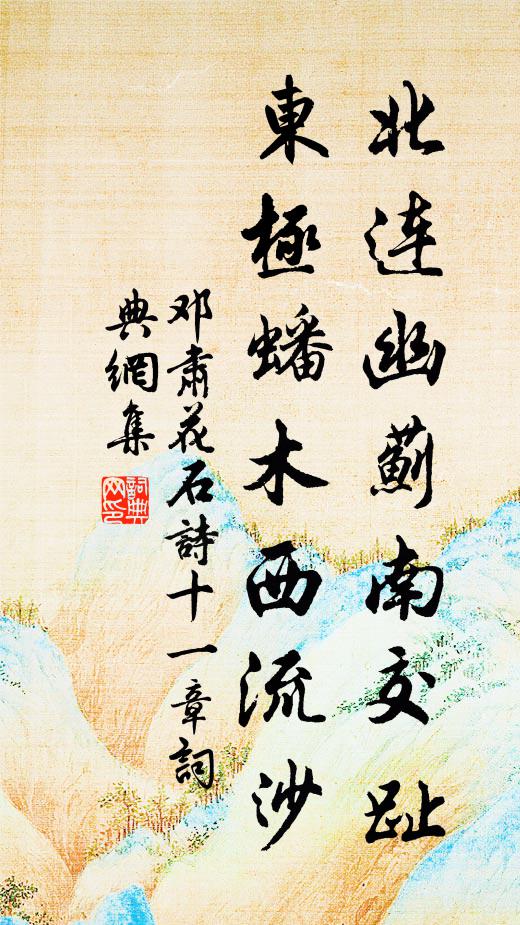 北连幽薊南交趾
東極蟠木西流沙
邓肅花石詩十一章詞
典網集
詞典网印